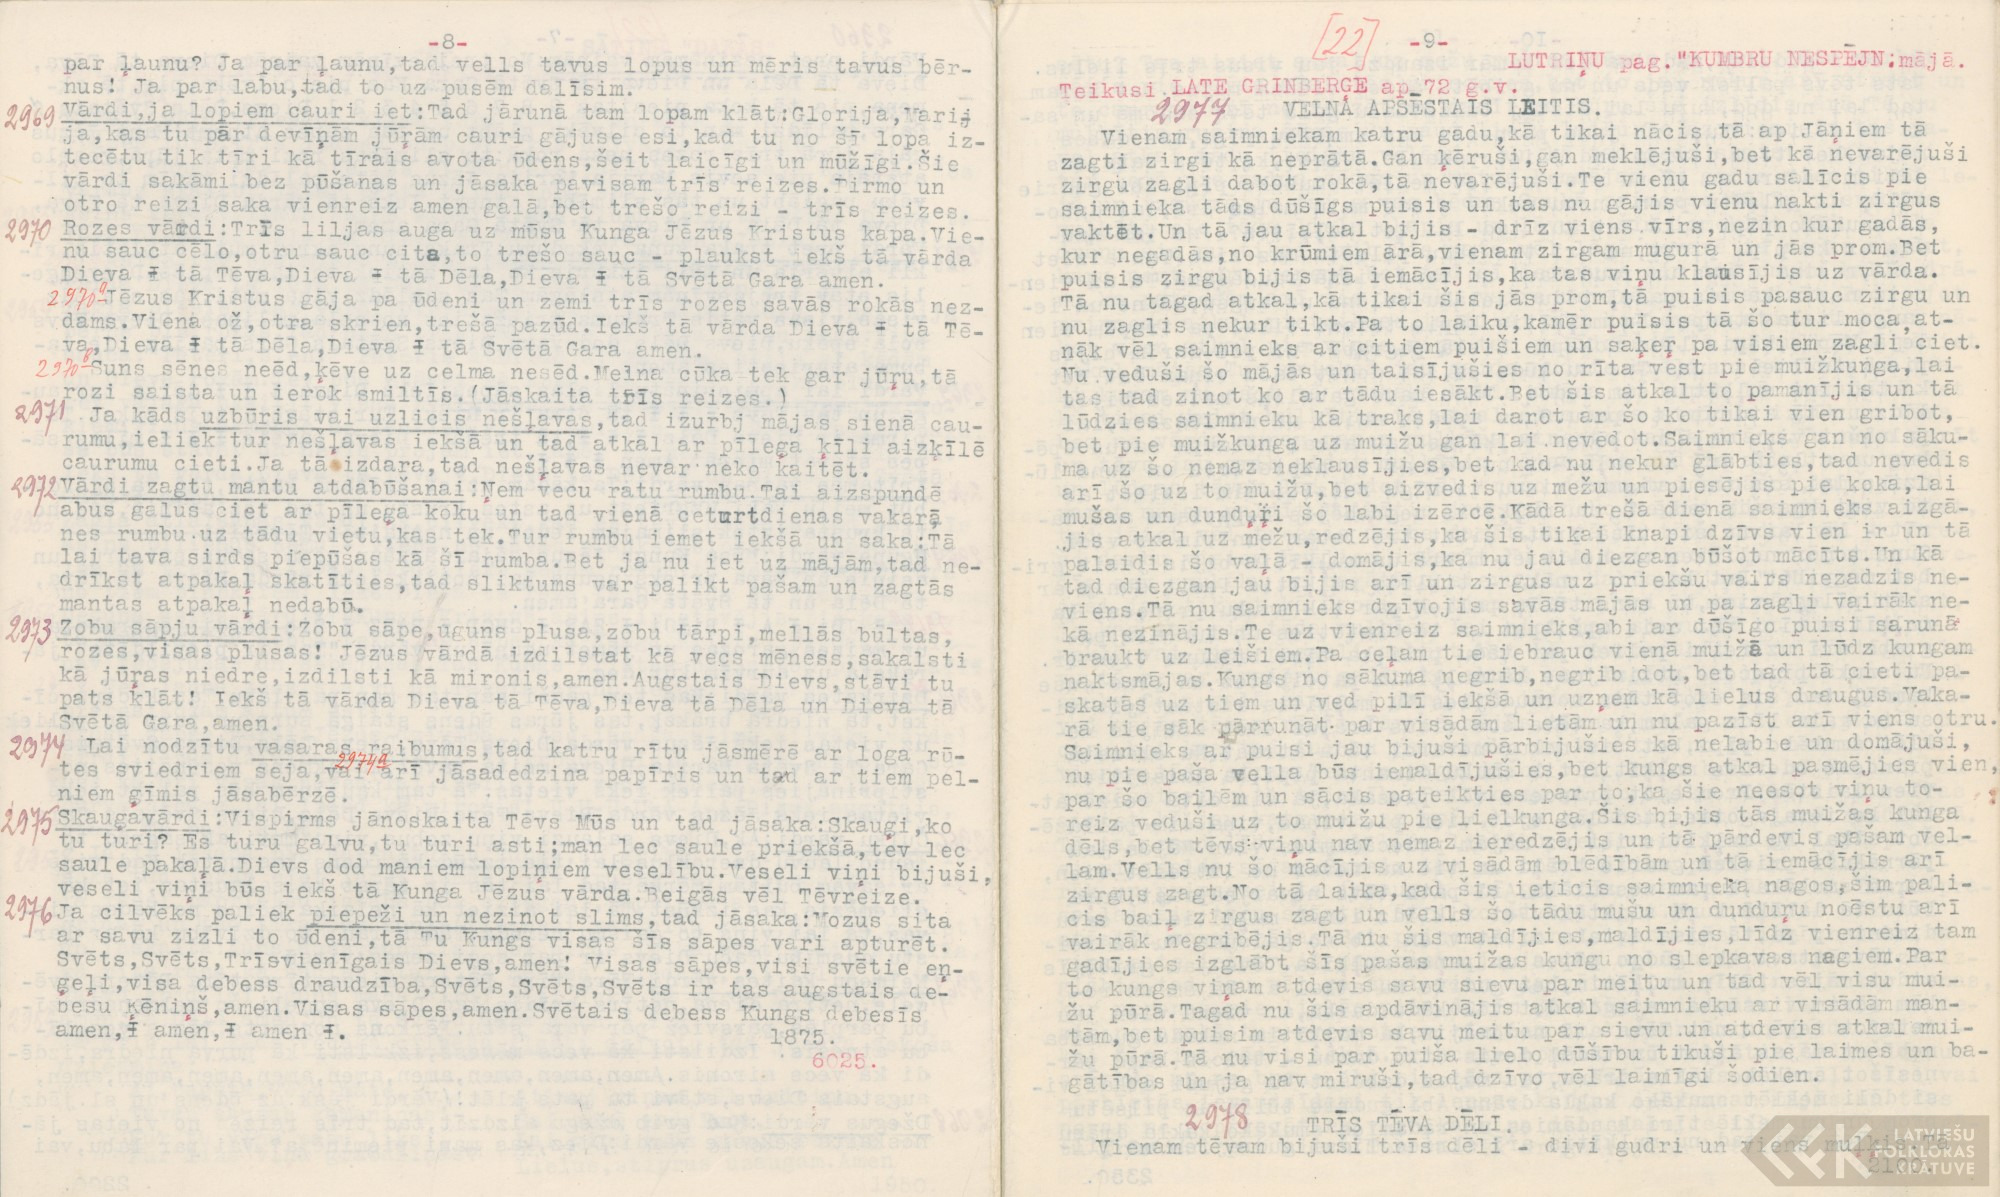 -8-
par ļaunu? Ja par ļaunu,tad vells tavus lopus un mēris tavus bēr-
nus! Ja par labu,tad to uz pusēm dalīsim.
2969 Vārdi,ja lopiem cauri iet:Tad jārunā tam lopam klāt:Glorija,Varij
ja,kas tu pār deviņām jūŗām cauri gājuse esi,kad tu no šī lopa iz-
tecētu tik tīri kā tīrais avota ūdens,šeit laicīgi un mūžīgi.Šie
vārdi sakāmi bez pūšanas un jāsaka pavisam trīs reizes.Pirmo un
otro reizi saka vienreiz amen galā,bet trešo reizi - trīs reizes.
2970 Rozes vārdi:Trīs liljas auga uz mūsu Kunga Jēzus Kristus kapa.Vie-
nu sauc cēlo,otru sauc cita,to trešo sauc - plaukst iekš tā vārda
Dieva ┼ tā Tēva,Dieva ┼ tā Dēla,Dieva ┼ tā Svētā Gara amen.
2970a Jēzus Kristus gāja pa ūdeni un zemi trīs rozes savās rokās nez-
dams.Viena ož,otra skrien,trešā pazūd.Iekš tā vārda Dieva ┼ tā Tē-
va,Dieva ┼ tā Dēla,Dieva ┼ tā Svētā Gara amen.
2970b Suns sēnes neēd,ķēve uz celma nesēd.Melna cūka tek gar jūŗu,tā
rozi saista un ierok smiltīs.(Jāskaita trīs reizes.)
2971 Ja kāds uzbūris vai uzlicis nešļavas,tad izurbj mājas sienā cau-
rumu,ieliek tur nešļavas iekšā un tad atkal ar pīlega ķīli aizķīlē
caurumu cieti.Ja tā izdara,tad nešļavas nevar neko kaitēt.
2972 Vārdi zagtu mantu atdabūšanai:Ņem vecu ratu rumbu.Tai aizspundē
abus galus ciet ar pīlega koku un tad vienā ceturtdienas vakarā
nes rumbu uz tādu vietu,kas tek.Tur rumbu iemet iekšā un saka:Tā
lai tava sirds piepūšas kā šī rumba.Bet ja nu iet uz mājām,tad ne-
drīkst atpakaļ skatīties,tad sliktums var palikt pašam un zagtās
mantas atpakaļ nedabū.
2973 Zobu sāpju vārdi:Zobu sāpe,uguns plusa,zobu tārpi,mellās bultas,
rozes,visas plusas! Jēzus vārdā izdilstat kā vecs mēness,sakalsti
kā jūŗas niedre,izdilsti kā mironis,amen.Augstais Dievs,stāvi tu
pats klāt! Iekš tā vārda Dieva tā Tēva,Dieva tā Dēla un Dieva tā
Svētā Gara,amen.
2974 Lai nodzītu vasaras raibumus,tad katru rītu jāsmērē ar loga rū-
tes sviedriem seja,vai 2974a arī jāsadedzina papīris un tad ar tiem pel-
niem ģīmis jāsabērzē.
2975 Skauģavārdi:Vispirms jānoskaita Tēvs Mūs un tad jāsaka:Skauģi,ko
tu turi? Es turu galvu,tu turi asti;man lec saule priekšā,tev lec
saule pakaļā.Dievs dod maniem lopiņiem veselību.Veseli viņi bijuši,
veseli viņi būs iekš tā Kunga Jēzus vārda.Beigās vēl Tēvreize.
2976 Ja cilvēks paliek piepeži un nezinot slims,tad jāsaka:Mozus sita
ar savu zizli to ūdeni,tā Tu Kungs visas šīs sāpes vari apturēt.
Svēts,Svēts,Trīsvienīgais Dievs,amen! Visas sāpes,visi svētie eņ-
ģeļi,visa debess draudzība,Svēts,Svēts,Svēts ir tas augstais de-
besu Ķēniņš,amen.Visas sāpes,amen.Svētais debess Kungs debesīs
amen,┼ amen,┼ amen ┼.
1875.
6025.
[22] -9-
LUTRIŅU pag."KUMBRU NESPĒJN;mājā.
Teikusi LATE GRINBERĢE ap 72 g.v.
2977 VELNA APSĒSTAIS LEITIS.
Vienam saimniekam katru gadu,kā tikai nācis tā ap Jāņiem tā
zagti zirgi kā neprātā.Gan ķēruši,gan meklējuši,bet kā nevarējuši
zirgu zagli dabot rokā,tā nevarējuši.Te vienu gadu salīcis pie
saimnieka tāds dūšīgs puisis un tas nu gājis vienu nakti zirgus
vaktēt.Un tā jau atkal bijis - drīz viens vīrs,nezin kur gadās,
kur negadās,no krūmiem ārā,vienam zirgam mugurā un jās prom.Bet
puisis zirgu bijis tā iemācījis,ka tas viņu klausījis uz vārda.
Tā nu tagad atkal,kā tikai šis jās prom,tā puisis pasauc zirgu un
nu zaglis nekur tikt.Pa to laiku,kamēr puisis tā šo tur moca,at-
nāk vēl saimnieks ar citiem puišiem un saķeŗ pa visiem zagli ciet.
Nu veduši šo mājās un taisījušies no rīta vest pie muižkunga,lai
tas tad zinot ko ar tādu iesākt.Bet šis atkal to pamanījis un tā
lūdzies saimnieku kā traks,lai darot ar šo ko tikai vien gribot,
bet pie muižkunga uz muižu gan lai nevedot.Saimnieks gan no sāku-
ma uz šo nemaz neklausījies,bet kad nu nekur glābties,tad nevedis
arī šo uz to muižu,bet aizvedis uz mežu un piesējis pie koka,lai
mušas un dunduŗi šo labi izērcē.Kādā trešā dienā saimnieks aizgā-
jis atkal uz mežu,redzējis,ka šis tikai knapi dzīvs vien ir un tā
palaidis šo vaļā - domājis,ka nu jau diezgan būšot mācīts.Un kā
tad diezgan jau bijis arī un zirgus uz priekšu vairs nezadzis ne-
viens.Tā nu saimnieks dzīvojis savās mājās un pa zagli vairāk ne-
kā nezinājis.Te uz vienreiz saimnieks,abi ar dūšīgo puisi sarunā
braukt uz leišiem.Pa ceļam tie iebrauc vienā muižā un lūdz kungam
naktsmājas.Kungs no sākuma negrib,negrib dot,bet tad tā cieti pa-
skatās uz tiem un ved pilī iekšā un uzņem kā lielus draugus.Vaka-
rā tie sāk pārrunāt par visādām lietām un nu pazīst arī viens otru.
Saimnieks ar puisi jau bijuši pārbijušies kā nelabie un domājuši,
nu pie paša vella būs iemaldījušies,bet kungs atkal pasmējies vien,
par šo bailēm un sācis pateikties par to,ka šie neesot viņu to-
reiz veduši uz to muižu pie lielkunga.Šis bijis tās muižas kunga
dēls,bet tēvs viņu nav nemaz ieredzējis un tā pārdevis pašam vel-
lam.Vells nu šo mācījis uz visādām blēdībām un tā iemācījis arī
zirgus zagt.No tā laika,kad šis ieticis saimnieka nagos,šim pali-
cis baiļ zirgus zagt un vells šo tādu mušu un dunduŗu noēstu arī
vairāk negribējis.Tā nu šis maldījies,maldījies,līdz vienreiz tam
gadījies izglābt šīs pašas muižas kungu no slepkavas nagiem.Par
to kungs viņam atdevis savu sievu par meitu un tad vēl visu mui-
žu pūrā.Tagad nu šis apdāvinājis atkal saimnieku ar visādām man-
tām,bet puisim atdevis savu meitu par sievu un atdevis atkal mui-
žu pūrā.Tā nu visi par puiša lielo dūšību tikuši pie laimes un ba-
gātības un ja nav miruši,tad dzīvo vēl laimīgi šodien.
2978 TRĪS TĒVA DĒLI.
Vienam tēvam bijuši trīs dēli - divi gudri un viens muļķis.Tā
LATVIEŠU
FOLKLORAS
KRĀTUVE